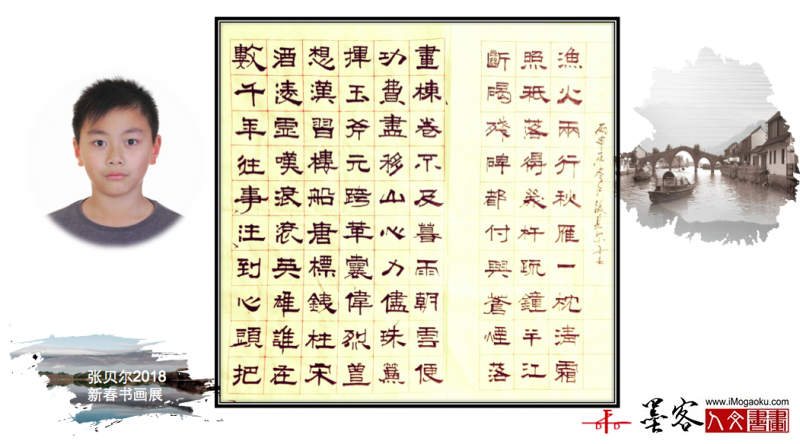 數千年往事注到心頭把
酒凌虛嘆滾滾英雄誰在
想漢習樓船唐標銕柱宋
揮玉斧元跨革囊偉烈豐
功費盡移山心力儘珠簾
畫棟卷不及暮雨朝雲便
斷碣殘碑都付與蒼煙落
照衹落得幾杵疏鐘半江
漁火兩行秋雁一枕清霜
张贝尔2018
新春书画展
墨客
www.iMogaoku.com
人文書畫